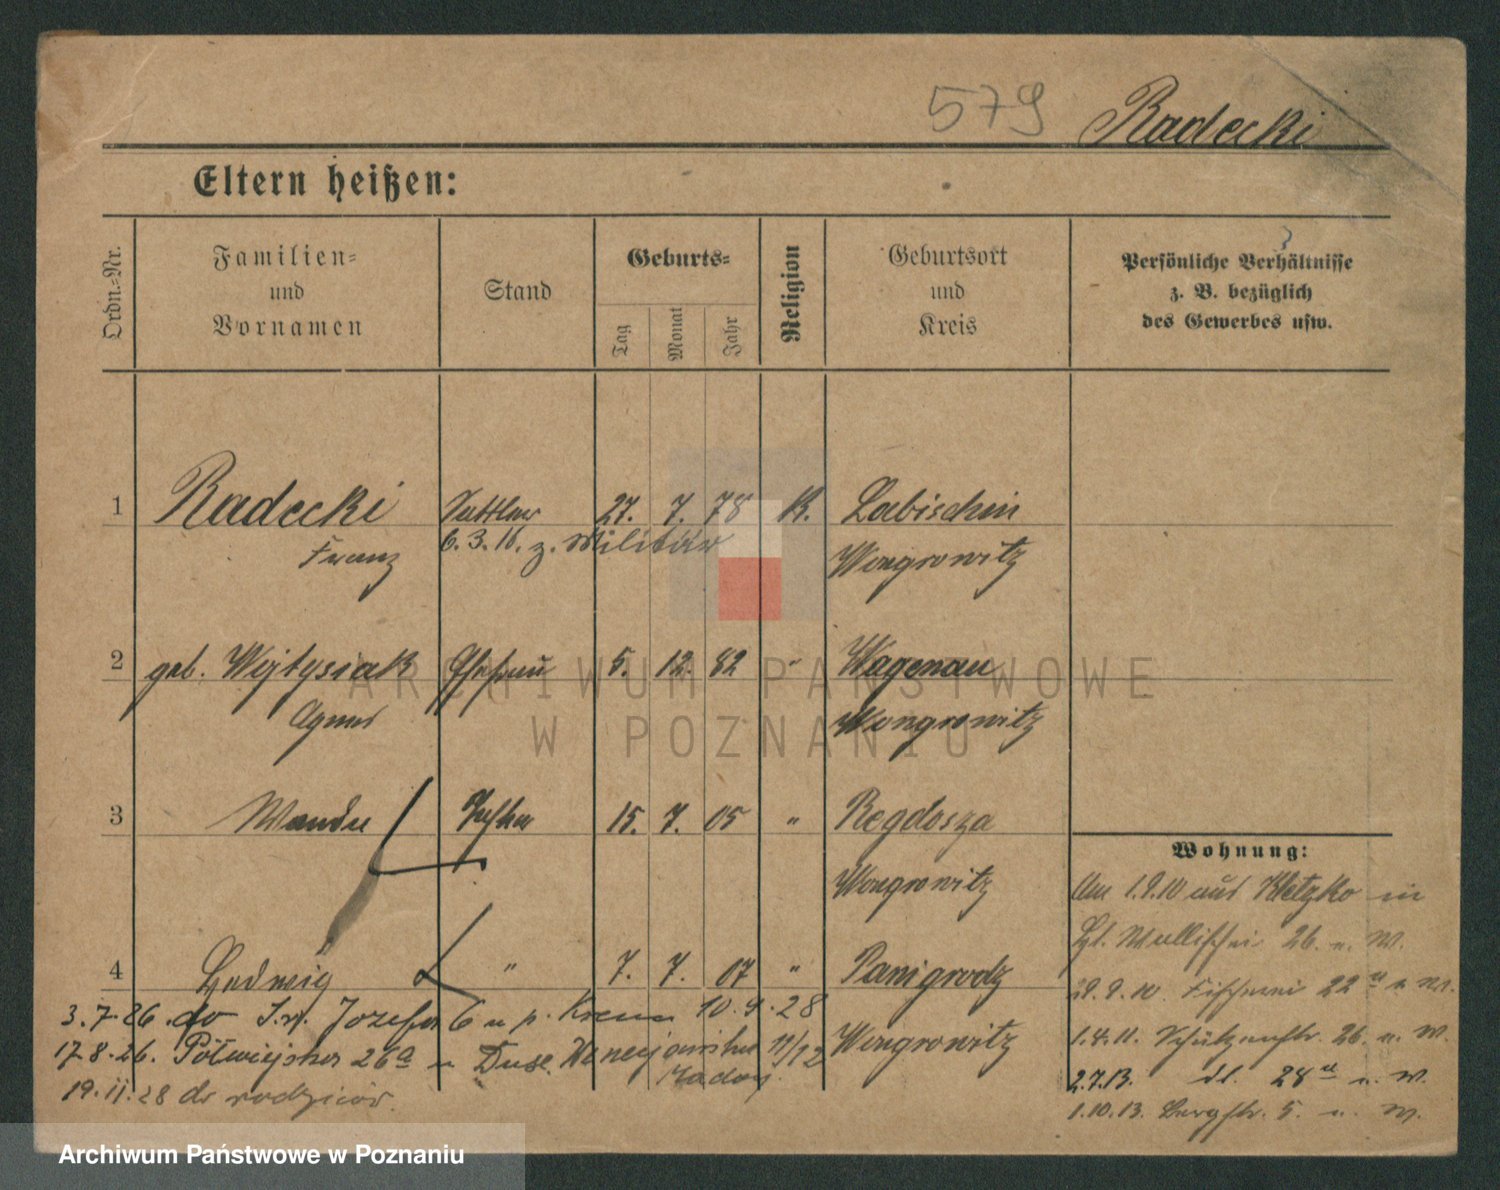 579 Radecki
Eltern heißen:
Ordn.-Nr.
Familien-
und
Vornamen
Stand
Geburts-
Tag
Monat
Jahr
Religion
Geburtsort
und
Kreis
Persönliche Verhältnisse
z. B. bezüglich
des Gewerbes usw.
1 Radecki Sattler 27. 7. 78 K. Labischin
Franz 6.3.16. z. Militär Wongrowitz
2 geb. Wojtysiak Ehefrau 5. 12. 82 " Wagenau
Agnes Wongrowitz
3 Wanda Tochter 15. 7. 05 " Regdosza
Wongrowitz
4 Hedwig " 7. 7. 07 " Panigrodz
Wongrowitz
Wohnung:
Am 1.9.10 aus Kletzko in
Wallischei 26. u. W.
29.9.10 Fischerei 22 u. W.
1.4.11. Schützenstr. 26. u. W.
2.7.13. dl. 28 u. W.
1.10.13. Bergstr. 5. u. W.
3.7.26. do Józefa 6 u p. 10.9.28
17.8.26. Półwiejska 26a u Duse. 11/12
19.11.28 do rodziców.
ARCHIWUM PAŃSTWOWE
W POZNANIU
Archiwum Państwowe w Poznaniu